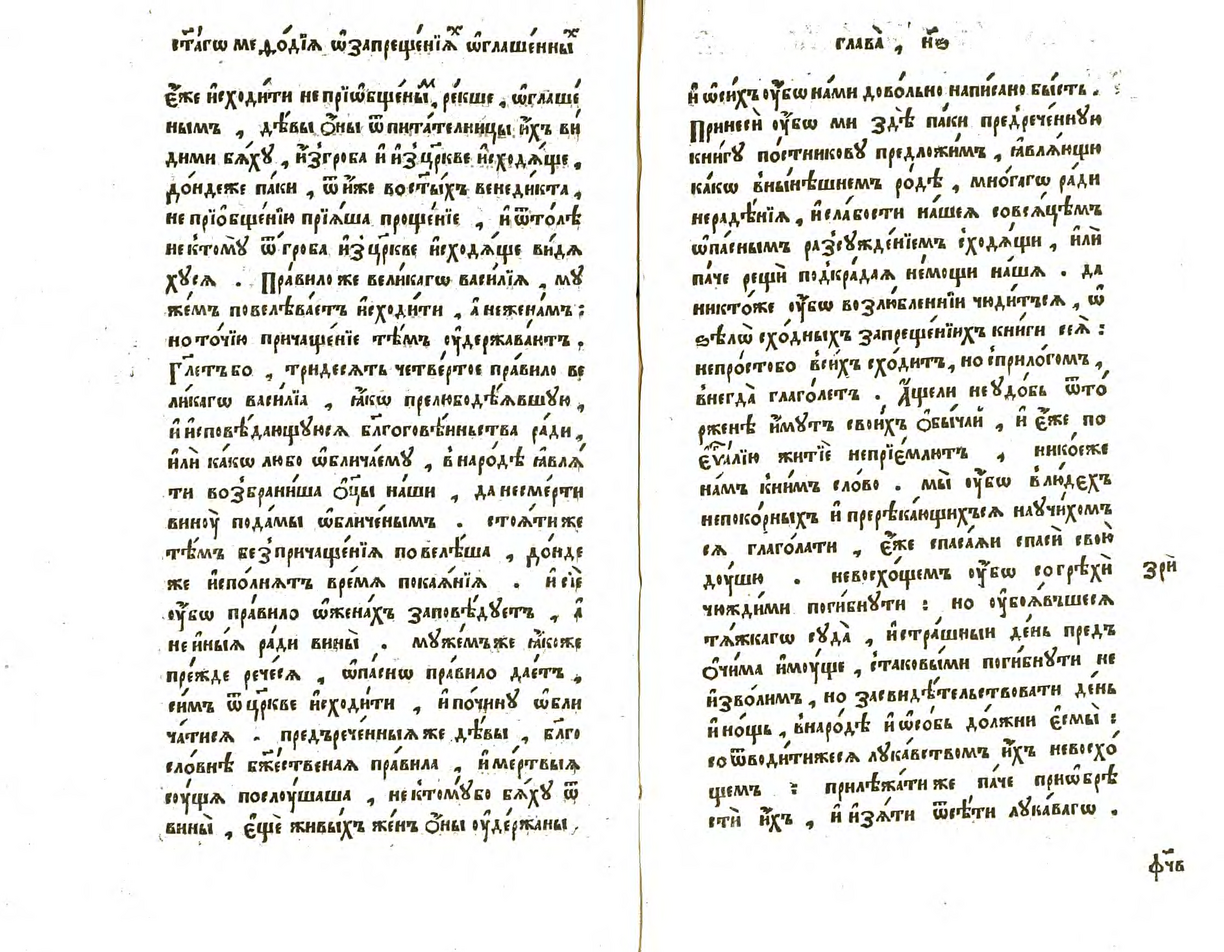 ст҃а́гѡ меѳо́дїѧ ѡ҆запреще́нїѧⷯ ѡ҆глаше́нныⷯ
є҆́же и҆сходи́ти непрїѡбще́ныⷨ, ре́кше, ѡ҆глаше́
нымъ , дѣ́вы ѻ҆́ны ѿпита́телницы и҆́хъ ви́
дими бѧ́хꙋ , и҆з꙾гроба и҆ и҆з꙾цр҃кве и҆сходѧ́ще ,
до́ндеже па́ки , ѿ и҆́же вост҃ы́хъ венеди́кта ,
не прїо҆бще́нїю прїѧ́ша проще́нїе , и҆ ѿто́лѣ
нектомꙋ̀ ѿгроба и҆з꙾цр҃кве и҆сходѧ́ще ви́дѧ
хꙋсѧ . Пра́вило же вели́кагѡ васи́лїѧ , мꙋ
же́мъ повелѣва́етъ и҆сходи́ти , а҆ неженам꙽ :
но то́чїю причаще́нїе тѣ́мъ ѹ҆держава́ютъ .
Гл҃етъбо , три́десѧть четве́ртое пра́вило ве
ли́кагѡ васи́лїа , ꙗ҆́кѡ прелюбодѣ́ѧвшꙋю ,
и҆ и҆сповѣ́дающꙋюсѧ бл҃гоговѣ́иньства ра́ди ,
и҆лѝ ка́кѡ лю́бо ѡ҆блича́емꙋ , в наро́дѣ ꙗ҆влѧ́
ти возбрани́ша ѻ҆ц҃ы на́ши , да несме́рти
винꙋ̀ пода́мы ѡ҆бличе́нымъ . стоѧ́ти же
тѣ́мъ без꙾причаще́нїѧ повелѣ́ша , до́нде
же и҆спо́лнѧтъ вре́мѧ покаѧ́нїѧ . и҆ сїѐ
ѹ҆́бѡ пра́вило ѡ҆жена́хъ заповѣ́дꙋетъ , а҆
не и҆́ныѧ ра́ди вины̀ . мꙋже́мъже ꙗ҆́коже
пре́жде рече́сѧ , ѡ҆па́снѡ пра́вило дае́тъ ,
си́мъ ѿцр҃кве и҆сходи́ти , и҆ почи́нꙋ ѡ҆бли
ча́тисѧ . предъречє́нныѧже дѣ́вы , бл҃го
сло́внѣ бж҃е́ственаѧ пра́вила , и҆ ме́ртвыѧ
сꙋ́щѧ послꙋ́шаша , не ктомꙋ́бо бѧ́хꙋ ѿ
вины̀ , є҆щѐ живы́хъ же́нъ ѻ҆́ны ѹ҆де́ржаны .
глава̀ , н҃ѳ
и҆ ѡ҆си́хъ ѹ҆́бѡ на́ми дово́льно напи́сано бы́сть .
Принесѝ ѹ҆́бѡ ми здѣ̀ па́ки предрече́ннꙋю
кни́гꙋ по́стниковꙋ предложи́мъ , ꙗ҆влѧ́ющꙋ
ка́кѡ вны́нѣшнемъ ро́дѣ , мно́гагѡ ра́ди
нераде́нїѧ , и҆ сла́бости на́шеѧ совсѧ́цѣмъ
ѡ҆па́снымъ разсꙋжде́нїемъ сходѧ́щи , и҆лѝ
па́че рещѝ подкра́даѧ не́мощи на́шѧ . да
никто́же ѹ҆́бѡ возлю́бленнїи чюди́тьсѧ , ѡ҆
ѕѣлѡ̀ схо́дныхъ запреще́нїихъ кни́ги сеѧ̀ :
непро́стобо всѝхъ схо́дитъ , но сприло́гомъ ,
внегда̀ глаго́летъ . А҆́щели не ꙋ҆до́бь ѿто́
рженѣ и҆́мꙋтъ свои́хъ ѻ҆бы́чаи , и҆ є҆́же по
є҆ѵⷢ҇а́лїю житїѐ непрїе́млютъ , нико́еже
на́мъ кни́мъ сло́во . мы̀ ѹ҆́бѡ влю́дехъ
непоко́рныхъ и҆ прерѣка́ющихъсѧ наꙋчи́хомъ
сѧ глаго́лати , є҆́же спаса́ѧи спасѝ свою̀
дꙋ́шю . невосхо́щемъ ѹ҆́бѡ согрѣхѝ
чюжди́ми поги́бнꙋти : но ѹ҆боѧ́вшесѧ
тѧ́жкагѡ сꙋда̀ , и҆ стра́шныи де́нь предъ
ѻ҆чи́ма и҆мꙋ́ще , стаковы́ми поги́бнꙋти не
и҆зво́лимъ , но засвидѣ́тельствовати де́нь
и҆ но́щь , внаро́дѣ и҆ ѡ҆со́бь до́лжни є҆смы̀ :
соѿводи́тижесѧ лꙋка́вствомъ и҆́хъ невосхо́
щемъ : прилѣжа́ти же па́че приѡ҆брѣ
стѝ и҆́хъ , и҆ и҆зѧ́ти ѿсѣ́ти лꙋка́вагѡ .
зрѝ
ф҃чв